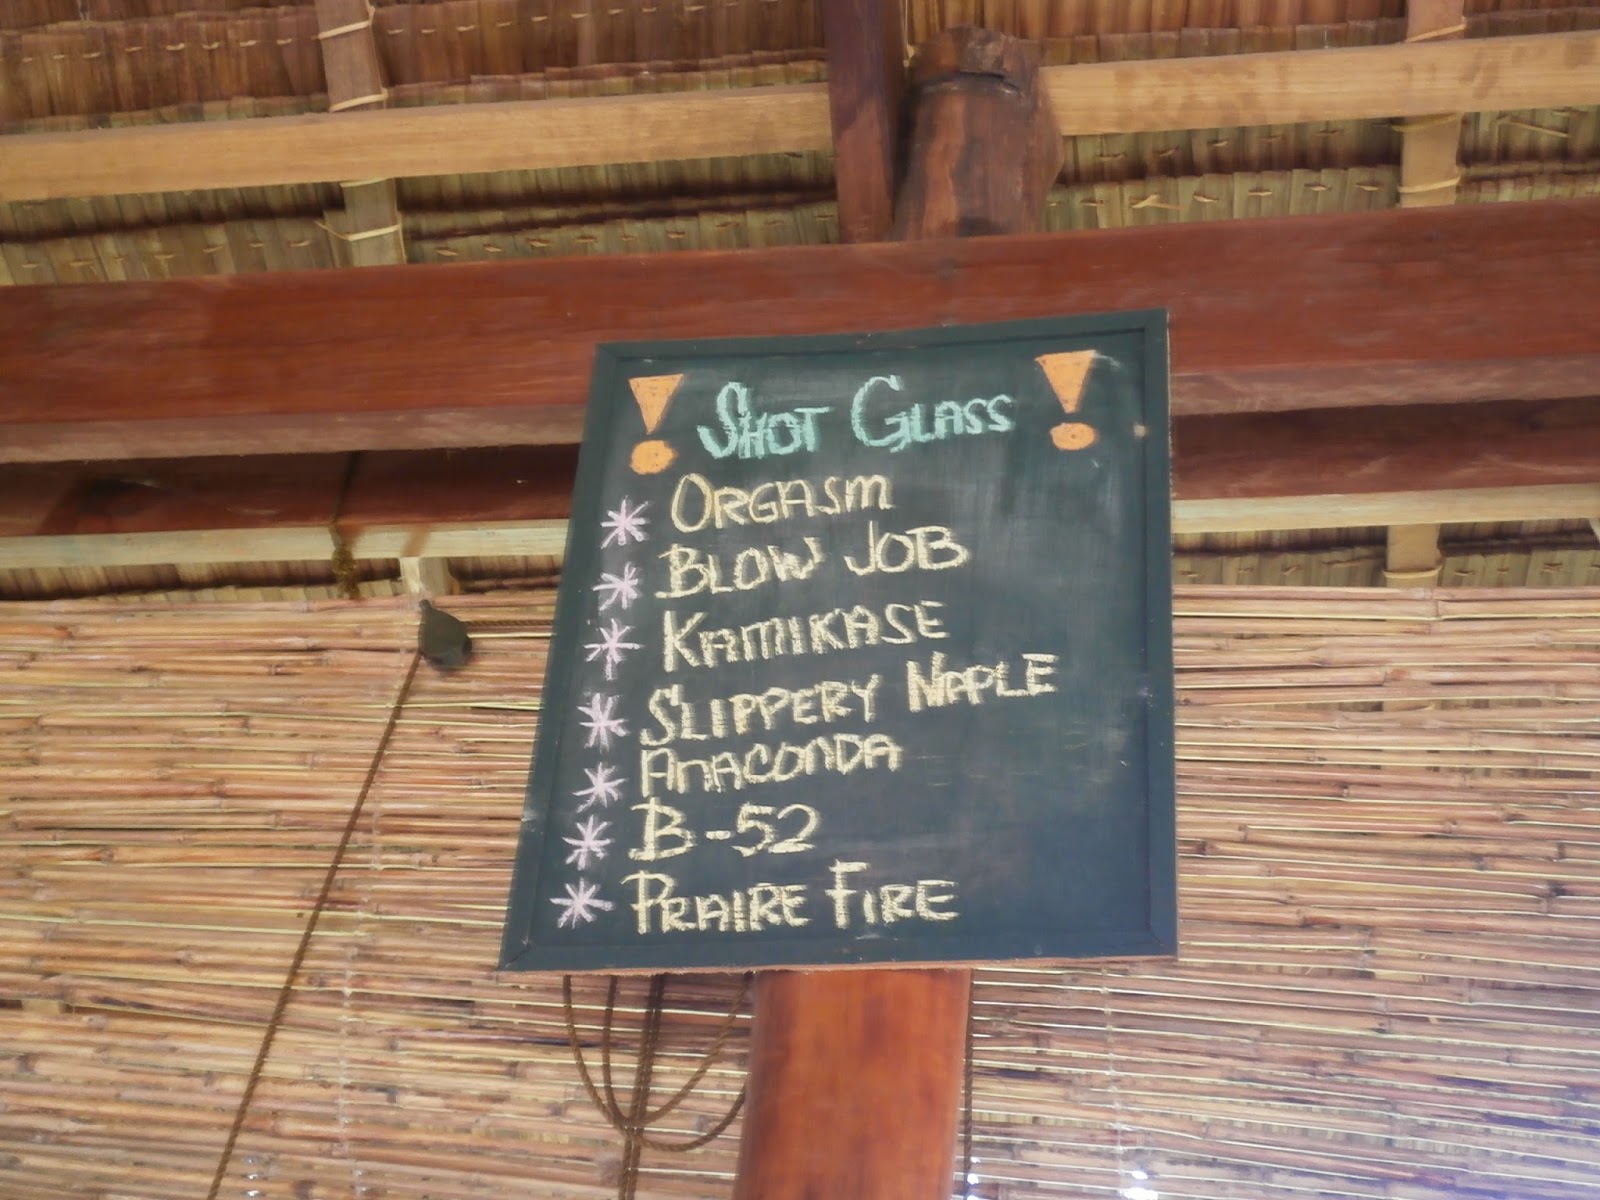 ! SHOT GLASS !
* ORGASM
* BLOW JOB
* KAMIKASE
* SLIPPERY NAPLE
* ANACONDA
* B-52
* PRAIRE FIRE